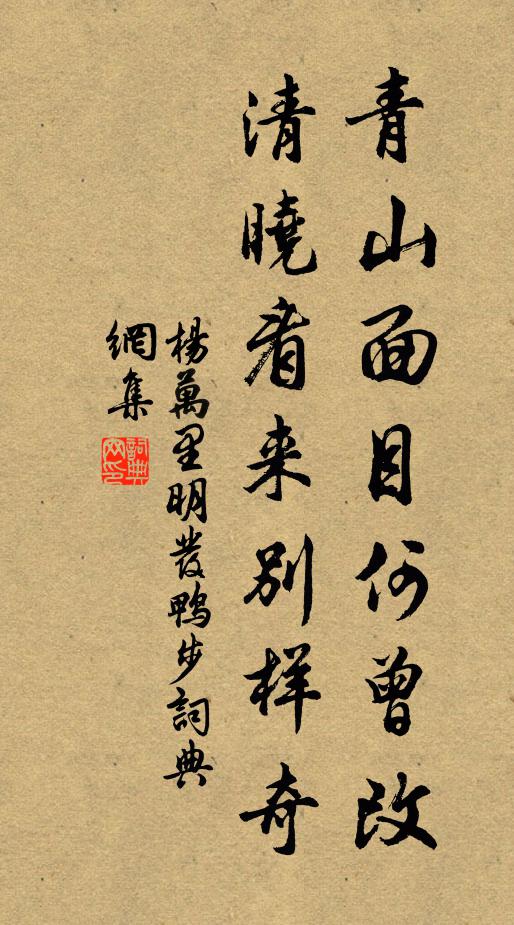 青山面目何曾改
清曉看来别样奇
楊萬里明發鴨步詞典
網集
詞典
网印